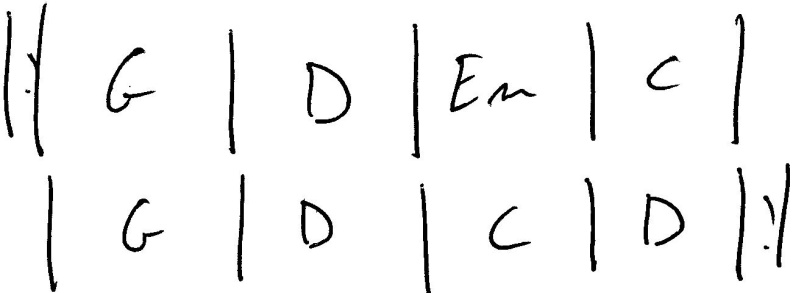 |: G | D | Em | C |
| G | D | C | D :|